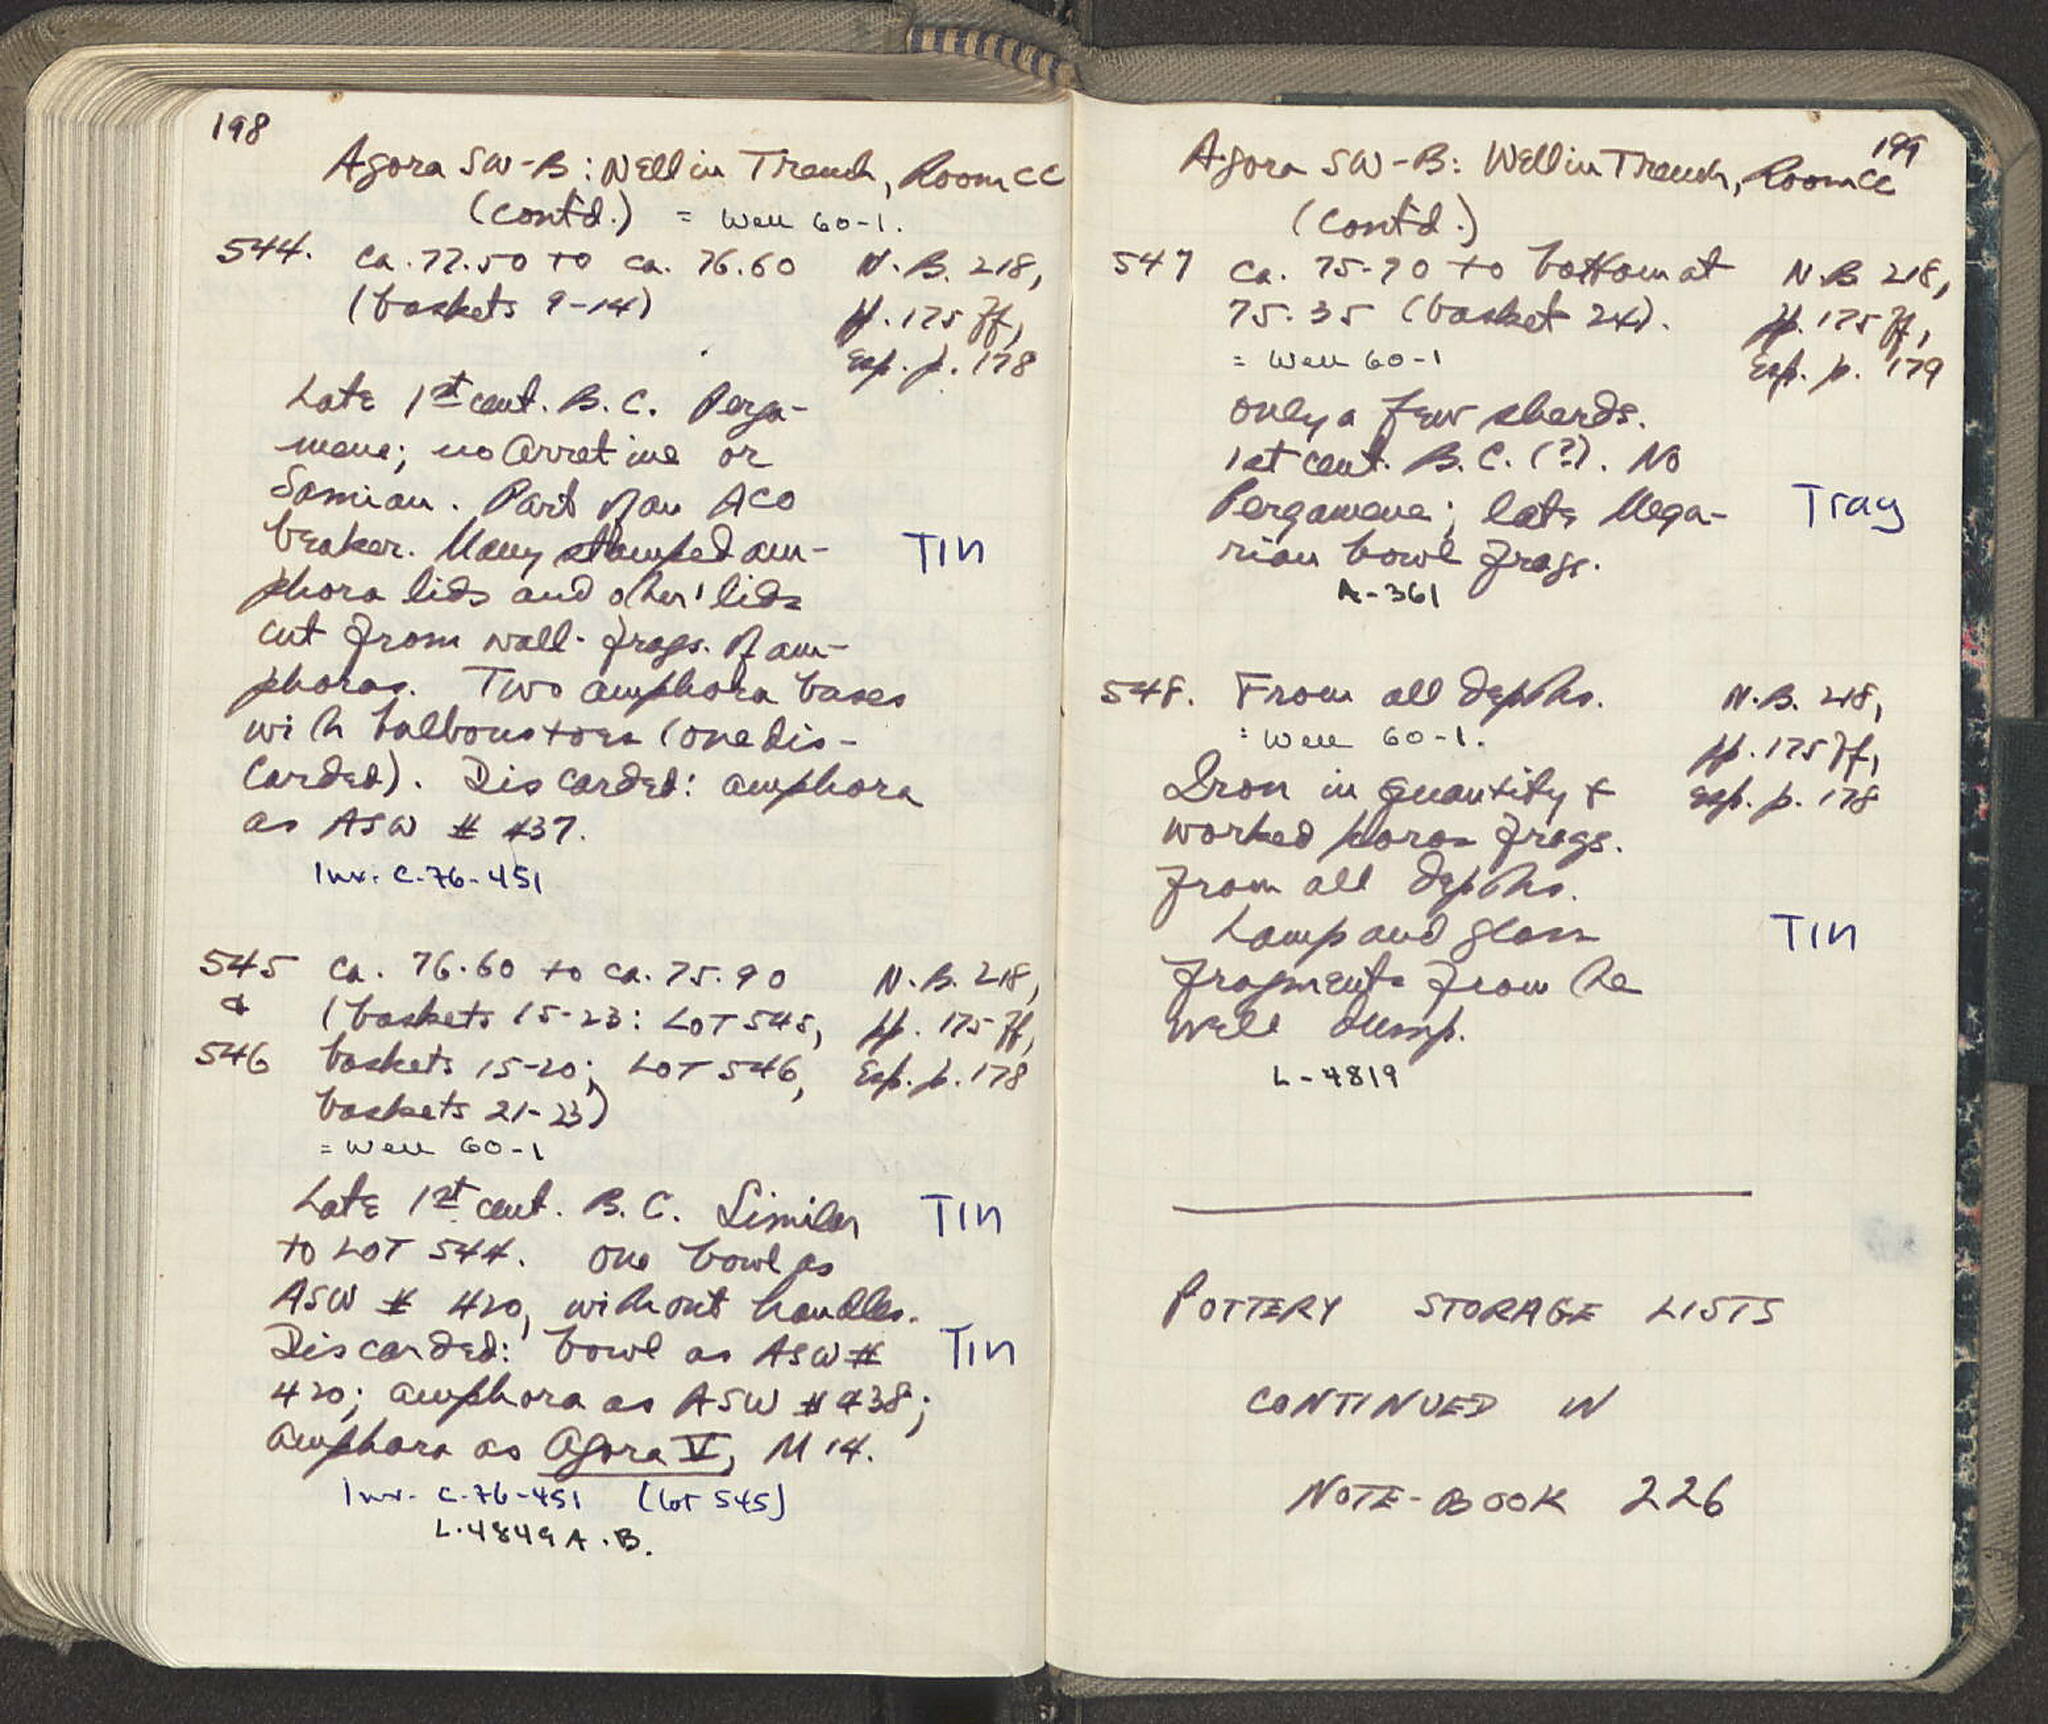 198
Agora SW-B: Well in Trench, Room CC
(contd.) = Well 60-1.
544. ca. 77.50 to ca. 76.60 N.B. 218,
(baskets 9-14) pp. 175 ff,
Esp. p. 178
Late 1st cent. B.C. Perga-
mene; no Arretine or
Samian. Part of an ACO
beaker. Many stamped am- Tin
phora lids and other lids
cut from wall-frags. of am-
phoras. Two amphora bases
with bulbous toes (one dis-
carded). Discarded: amphora
as ASW # 437.
Inv. C-76-451
545 ca. 76.60 to ca. 75.90 N.B. 218,
& (baskets 15-23: LOT 545, pp. 175 ff,
546 baskets 15-20; LOT 546, Esp. p. 178
baskets 21-23)
= Well 60-1
Late 1st cent. B.C. Similar Tin
to LOT 544. One bowl as
ASW # 420, without handles.
Discarded: bowl as ASW # Tin
420; amphora as ASW # 438;
amphora as Agora V, M 14.
Inv. C-76-451 (lot 545)
L-4849 A.B.
199
Agora SW-B: Well in Trench, Room CC
(contd.)
547 ca. 75.90 to bottom at N.B 218,
75.35 (basket 24). pp. 175 ff,
= Well 60-1 Esp. p. 179
only a few sherds.
1st cent. B.C. (?). No
Pergamene; late Mega- Tray
rian bowl frags.
A-361
548. From all depths. N.B. 218,
= Well 60-1. pp. 175 ff,
Iron in quantity + Esp. p. 178
worked poros frags.
from all depths.
Lamp and glass Tin
fragments from the
well dump.
L-4819
POTTERY STORAGE LISTS
CONTINUED IN
NOTE-BOOK 226